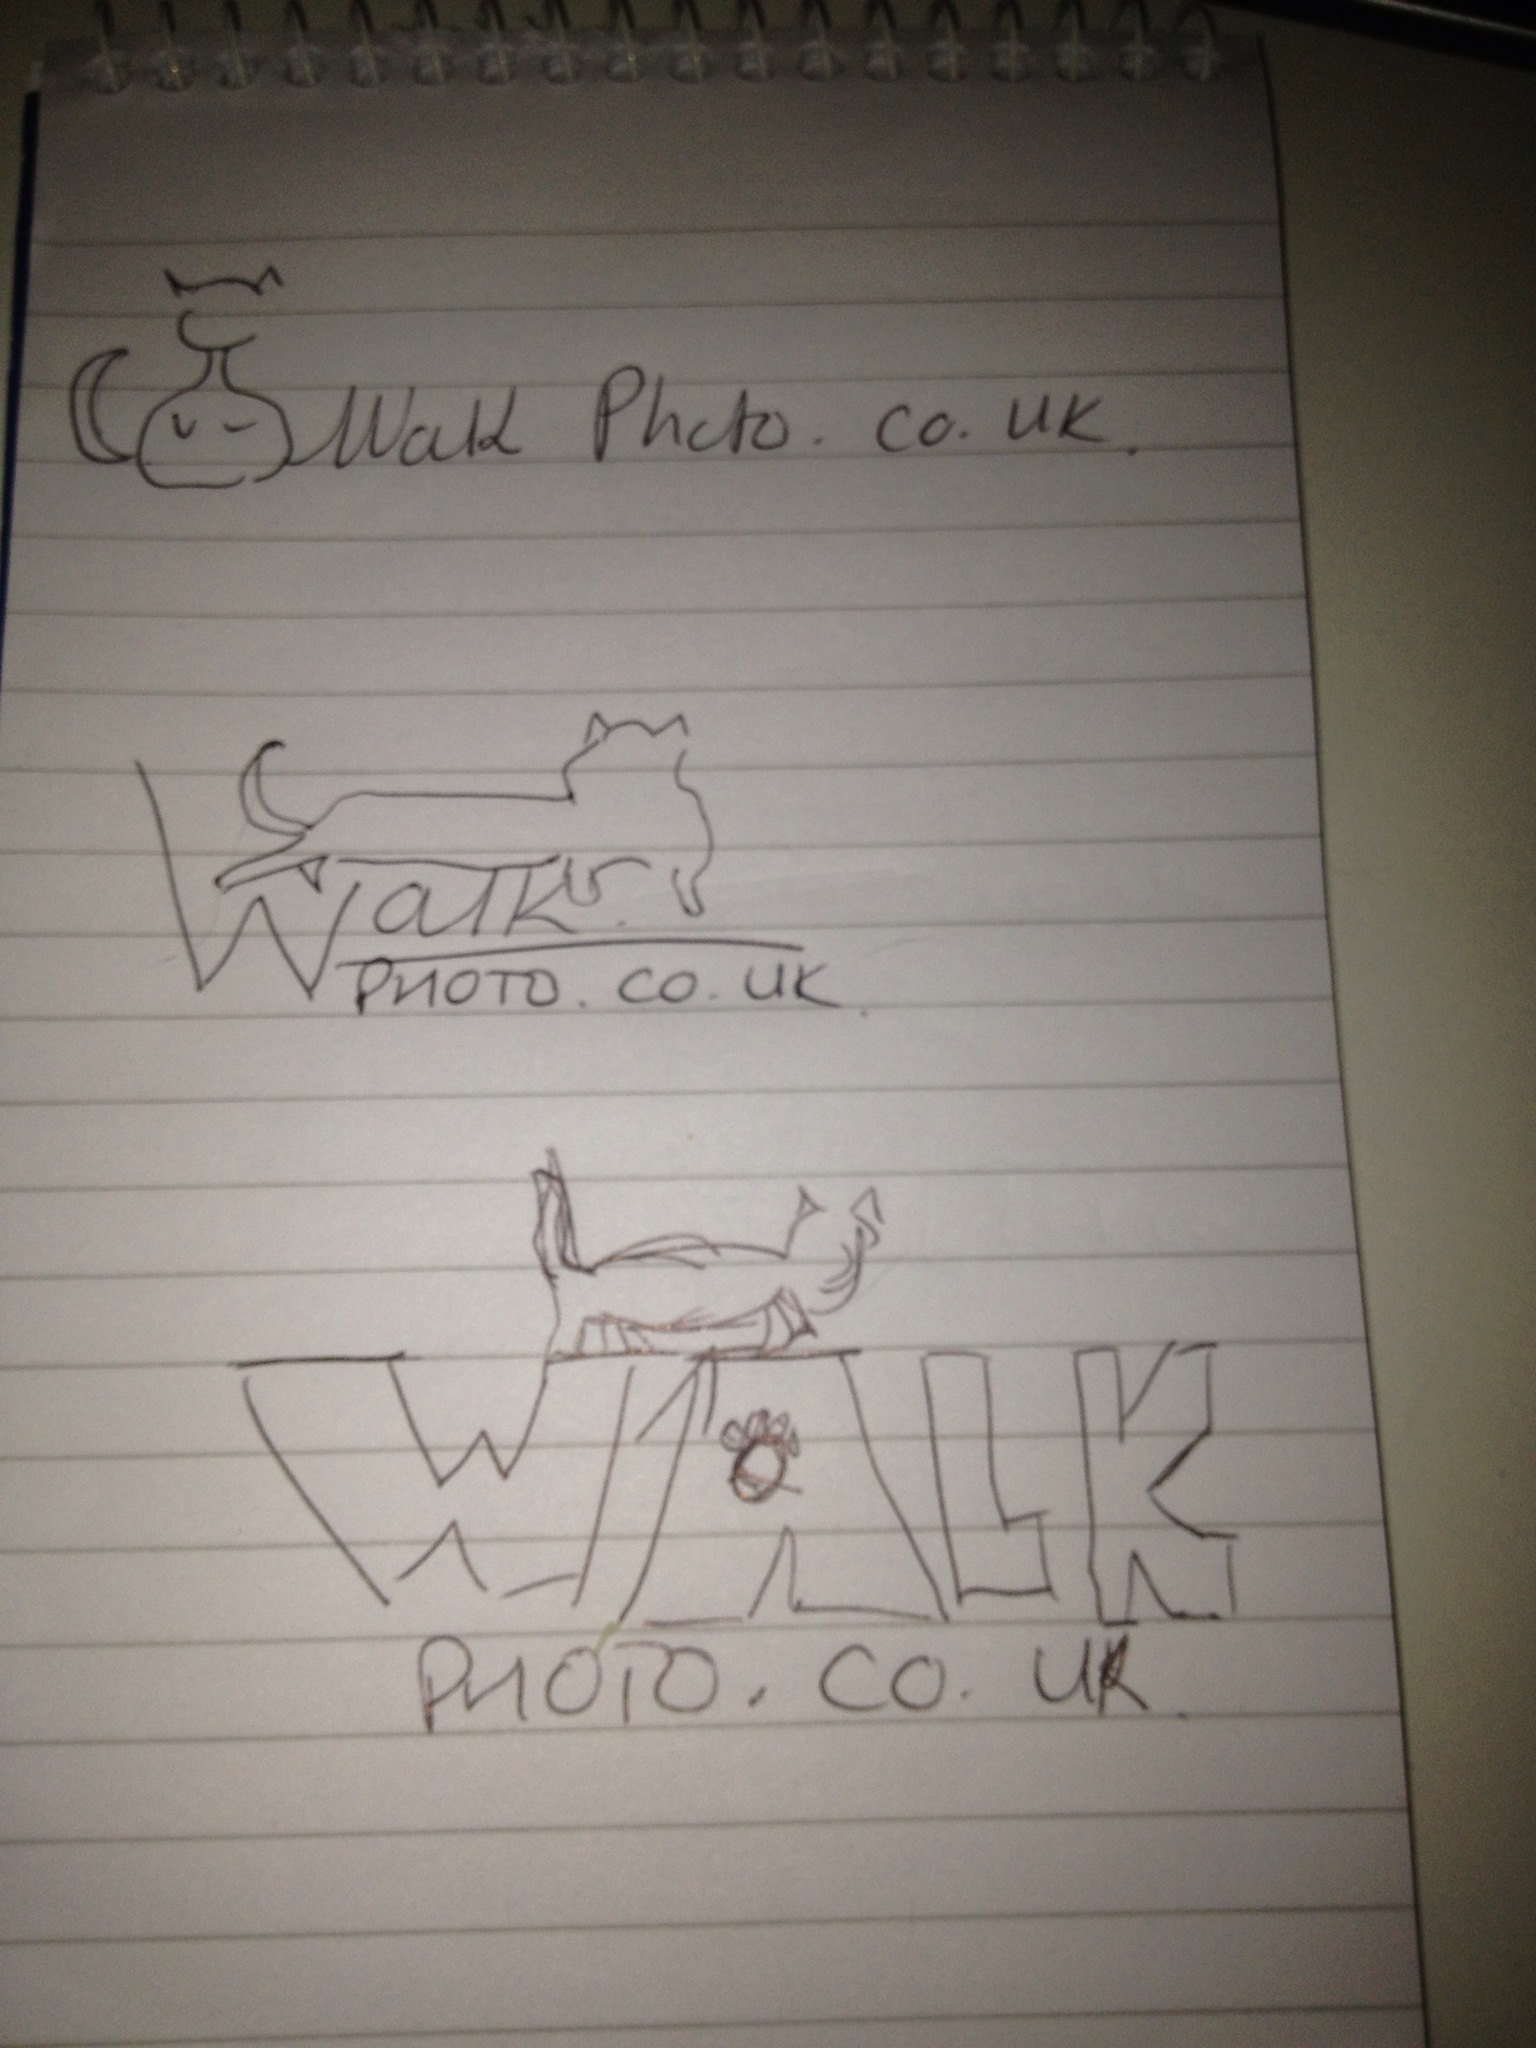 Walk Photo.co.uk.
Walk.
PHOTO.CO.UK.
WALK
PHOTO.CO.UK.